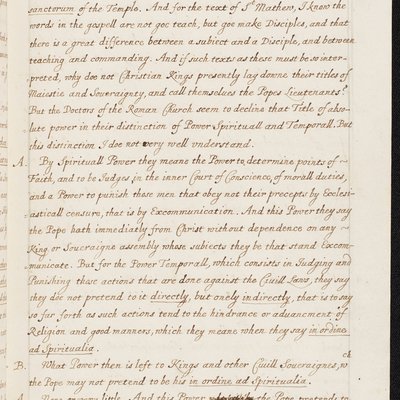 sanctorum of the Temple. And for the text of St Mathew, I know the
words in the gospell are not goe teach, but goe make Disciples, and that
there is a great difference between a subiect and a Disciple, and between
teaching and commanding. And if such texts as these must be so inter-
preted, why doe not Christian Kings presently lay downe their titles of
Maiestie and Soueraignty, and call themselues the Popes Lieutenants?
But the Doctors of the Roman Church seem to decline that Title of abso-
lute power in their distinction of Power Spirituall and Temporall. But
this distinction I doe not very well vnderstand.
A. By Spirituall Power they mean the Power to determine points of ~
Faith, and to be Judges in the inner Court of Conscience, of morall duties,
and a Power to punish those men that obey not their precepts by Eclesi-
asticall censure, that is by Excommunication. And this Power they say
the Pope hath immediatly from Christ without dependence on any ~
King or Soueraigne assembly whose subiects they be that stand excom-
municate. But for the Power Temporall, which consists in Judging and
Punishing those actions that are done against the Ciuill Laws, they say
they doe not pretend to it directly, but onely indirectly, that is to say
so far forth as such actions tend to the hindrance or aduancment of
Religion and good manners, which they meane when they say in ordine
ad Spiritualia.
B. What Power then is left to Kings and other Ciuill Soueraignes, wch
the Pope may not pretend to be his in ordine ad Spiritualia.
A. None or very little. And this Power the Pope pretends to